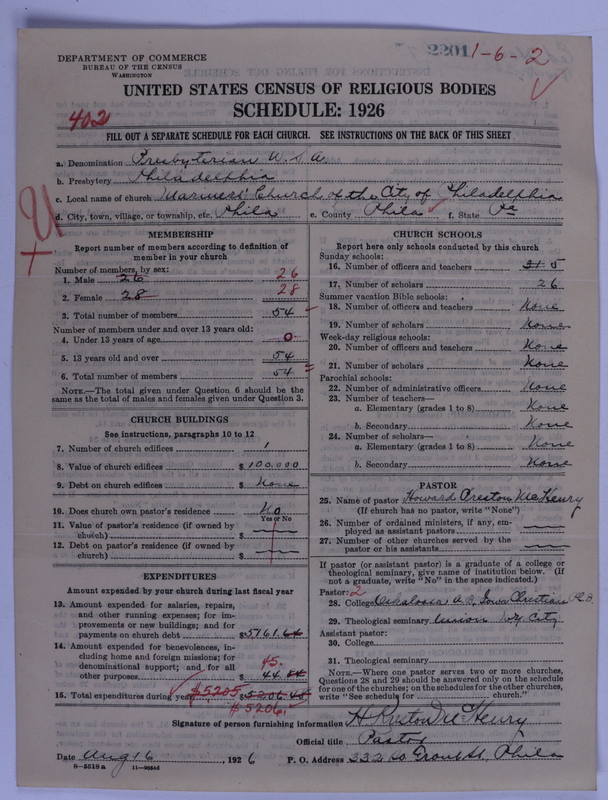 DEPARTMENT OF COMMERCE
BUREAU OF THE CENSUS
WASHINGTON
2201 1-6-2
UNITED STATES CENSUS OF RELIGIOUS BODIES
SCHEDULE: 1926
402
FILL OUT A SEPARATE SCHEDULE FOR EACH CHURCH. SEE INSTRUCTIONS ON THE BACK OF THIS SHEET
a. Denomination Presbyterian U.S.A.
b. Presbytery Philadelphia
c. Local name of church Mariners' Church of the City of Philadelphia
d. City, town, village, or township, etc. Phila e. County Phila f. State Pa
MEMBERSHIP
Report number of members according to definition of
member in your church
Number of members, by sex:
1. Male 26 26
2. Female 28 28
3. Total number of members 54
Number of members under and over 13 years old:
4. Under 13 years of age 0
5. 13 years old and over 54
6. Total number of members 54
NOTE.—The total given under Question 6 should be the
same as the total of males and females given under Question 3.
CHURCH BUILDINGS
See instructions, paragraphs 10 to 12
7. Number of church edifices 1
8. Value of church edifices $100.000
9. Debt on church edifices $ None
10. Does church own pastor's residence No
Yes or No
11. Value of pastor's residence (if owned by
church) $
12. Debt on pastor's residence (if owned by
church) $
EXPENDITURES
Amount expended by your church during last fiscal year
13. Amount expended for salaries, repairs,
and other running expenses; for im-
provements or new buildings; and for
payments on church debt $5161.64
14. Amount expended for benevolences, in-
cluding home and foreign missions; for
denominational support; and for all
other purposes 45. 44.84
15. Total expenditures during year $5205. $5206.48
$5206.
CHURCH SCHOOLS
Report here only schools conducted by this church
Sunday schools:
16. Number of officers and teachers 5
17. Number of scholars 26
Summer vacation Bible schools:
18. Number of officers and teachers None
19. Number of scholars None
Week-day religious schools:
20. Number of officers and teachers None
21. Number of scholars None
Parochial schools:
22. Number of administrative officers None
23. Number of teachers—
a. Elementary (grades 1 to 8) None
b. Secondary None
24. Number of scholars—
a. Elementary (grades 1 to 8) None
b. Secondary None
PASTOR
25. Name of pastor Howard Preston McHenry
(If church has no pastor, write "None")
26. Number of ordained ministers, if any, em-
ployed as assistant pastors
27. Number of other churches served by the
pastor or his assistants
If pastor (or assistant pastor) is a graduate of a college or
theological seminary, give name of institution below. (If
not a graduate, write "No" in the space indicated.)
Pastor: 2
28. College Oskaloosa Iowa Christian
29. Theological seminary Union NY City
Assistant pastor:
30. College
31. Theological seminary
NOTE.—Where one pastor serves two or more churches,
Questions 28 and 29 should be answered only on the schedule
for one of the churches; on the schedules for the other churches,
write "See schedule for church."
Signature of person furnishing information H Preston McHenry
Official title Pastor
Date Aug 16, 1926 P. O. Address 332 So Front St, Phila
8—5518 a